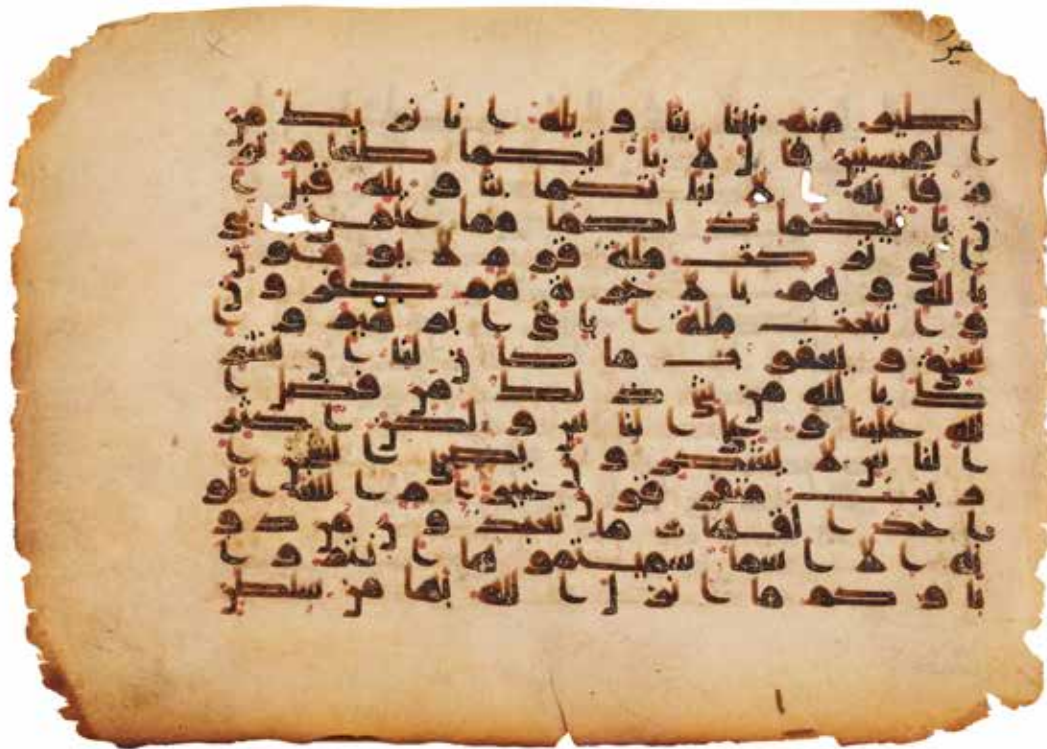 لطير منه نبئنا بتاويله انا نريك من
المحسنين قال لا ياتيكما طعام تر
زقانه الا نباتكما بتاويله قبل ا
ن ياتيكما ذلكما مما علمني ر
بي اني تركت ملة قوم لا يومنون
بالله وهم بالاخرة هم كفرون
واتبعت ملة اباي ابرهيم و ا
سحق ويعقوب ما كان لنا ان نشر
ك بالله من شي ذلك من فضل ا
لله علينا وعلى الناس ولكن اكثر
الناس لا يشكرون يصحبي السجن ا
رباب متفرقون خير ام الله الو
احد القهار ما تعبدون من دو
نه الا اسما سميتموها انتم و ا
باوكم ما انزل الله بها من سلطن